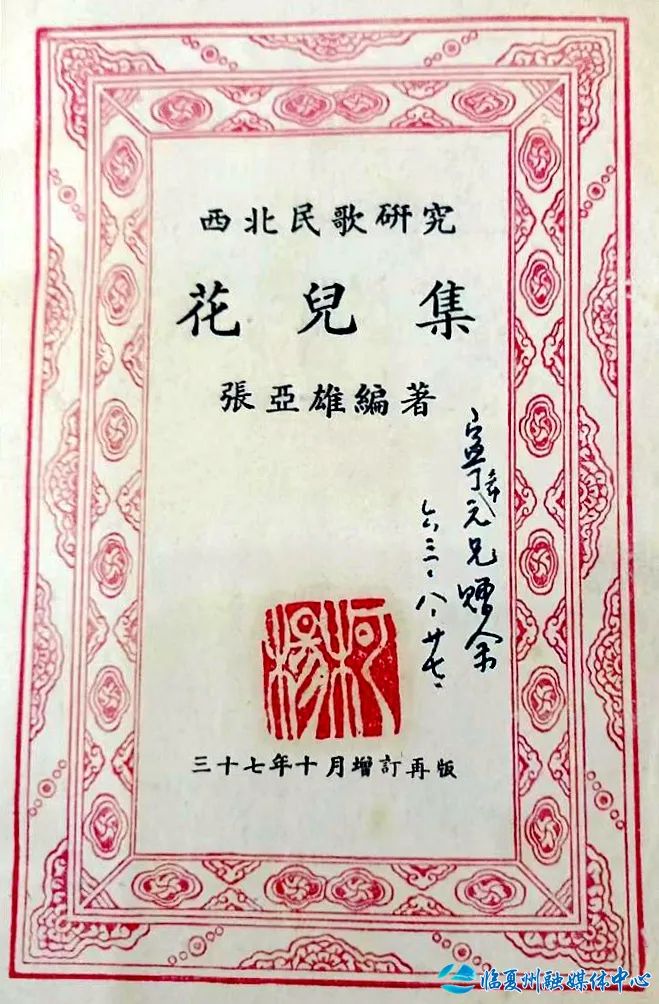 西北民歌研究
花兒集
張亞雄編著
元兄贈余
六三、八、廿七
柯楊
三十七年十月增訂再版
临夏州融媒体中心